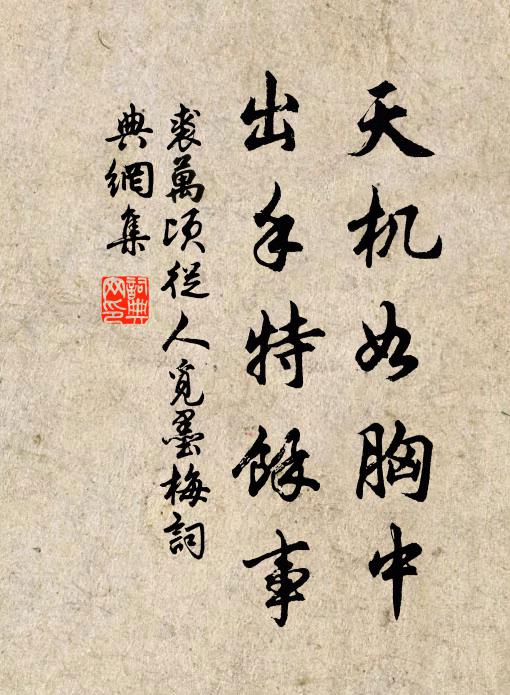 天机如胸中
出手特餘事
裘萬頃從人覓墨梅詞
典網集
詞典網印